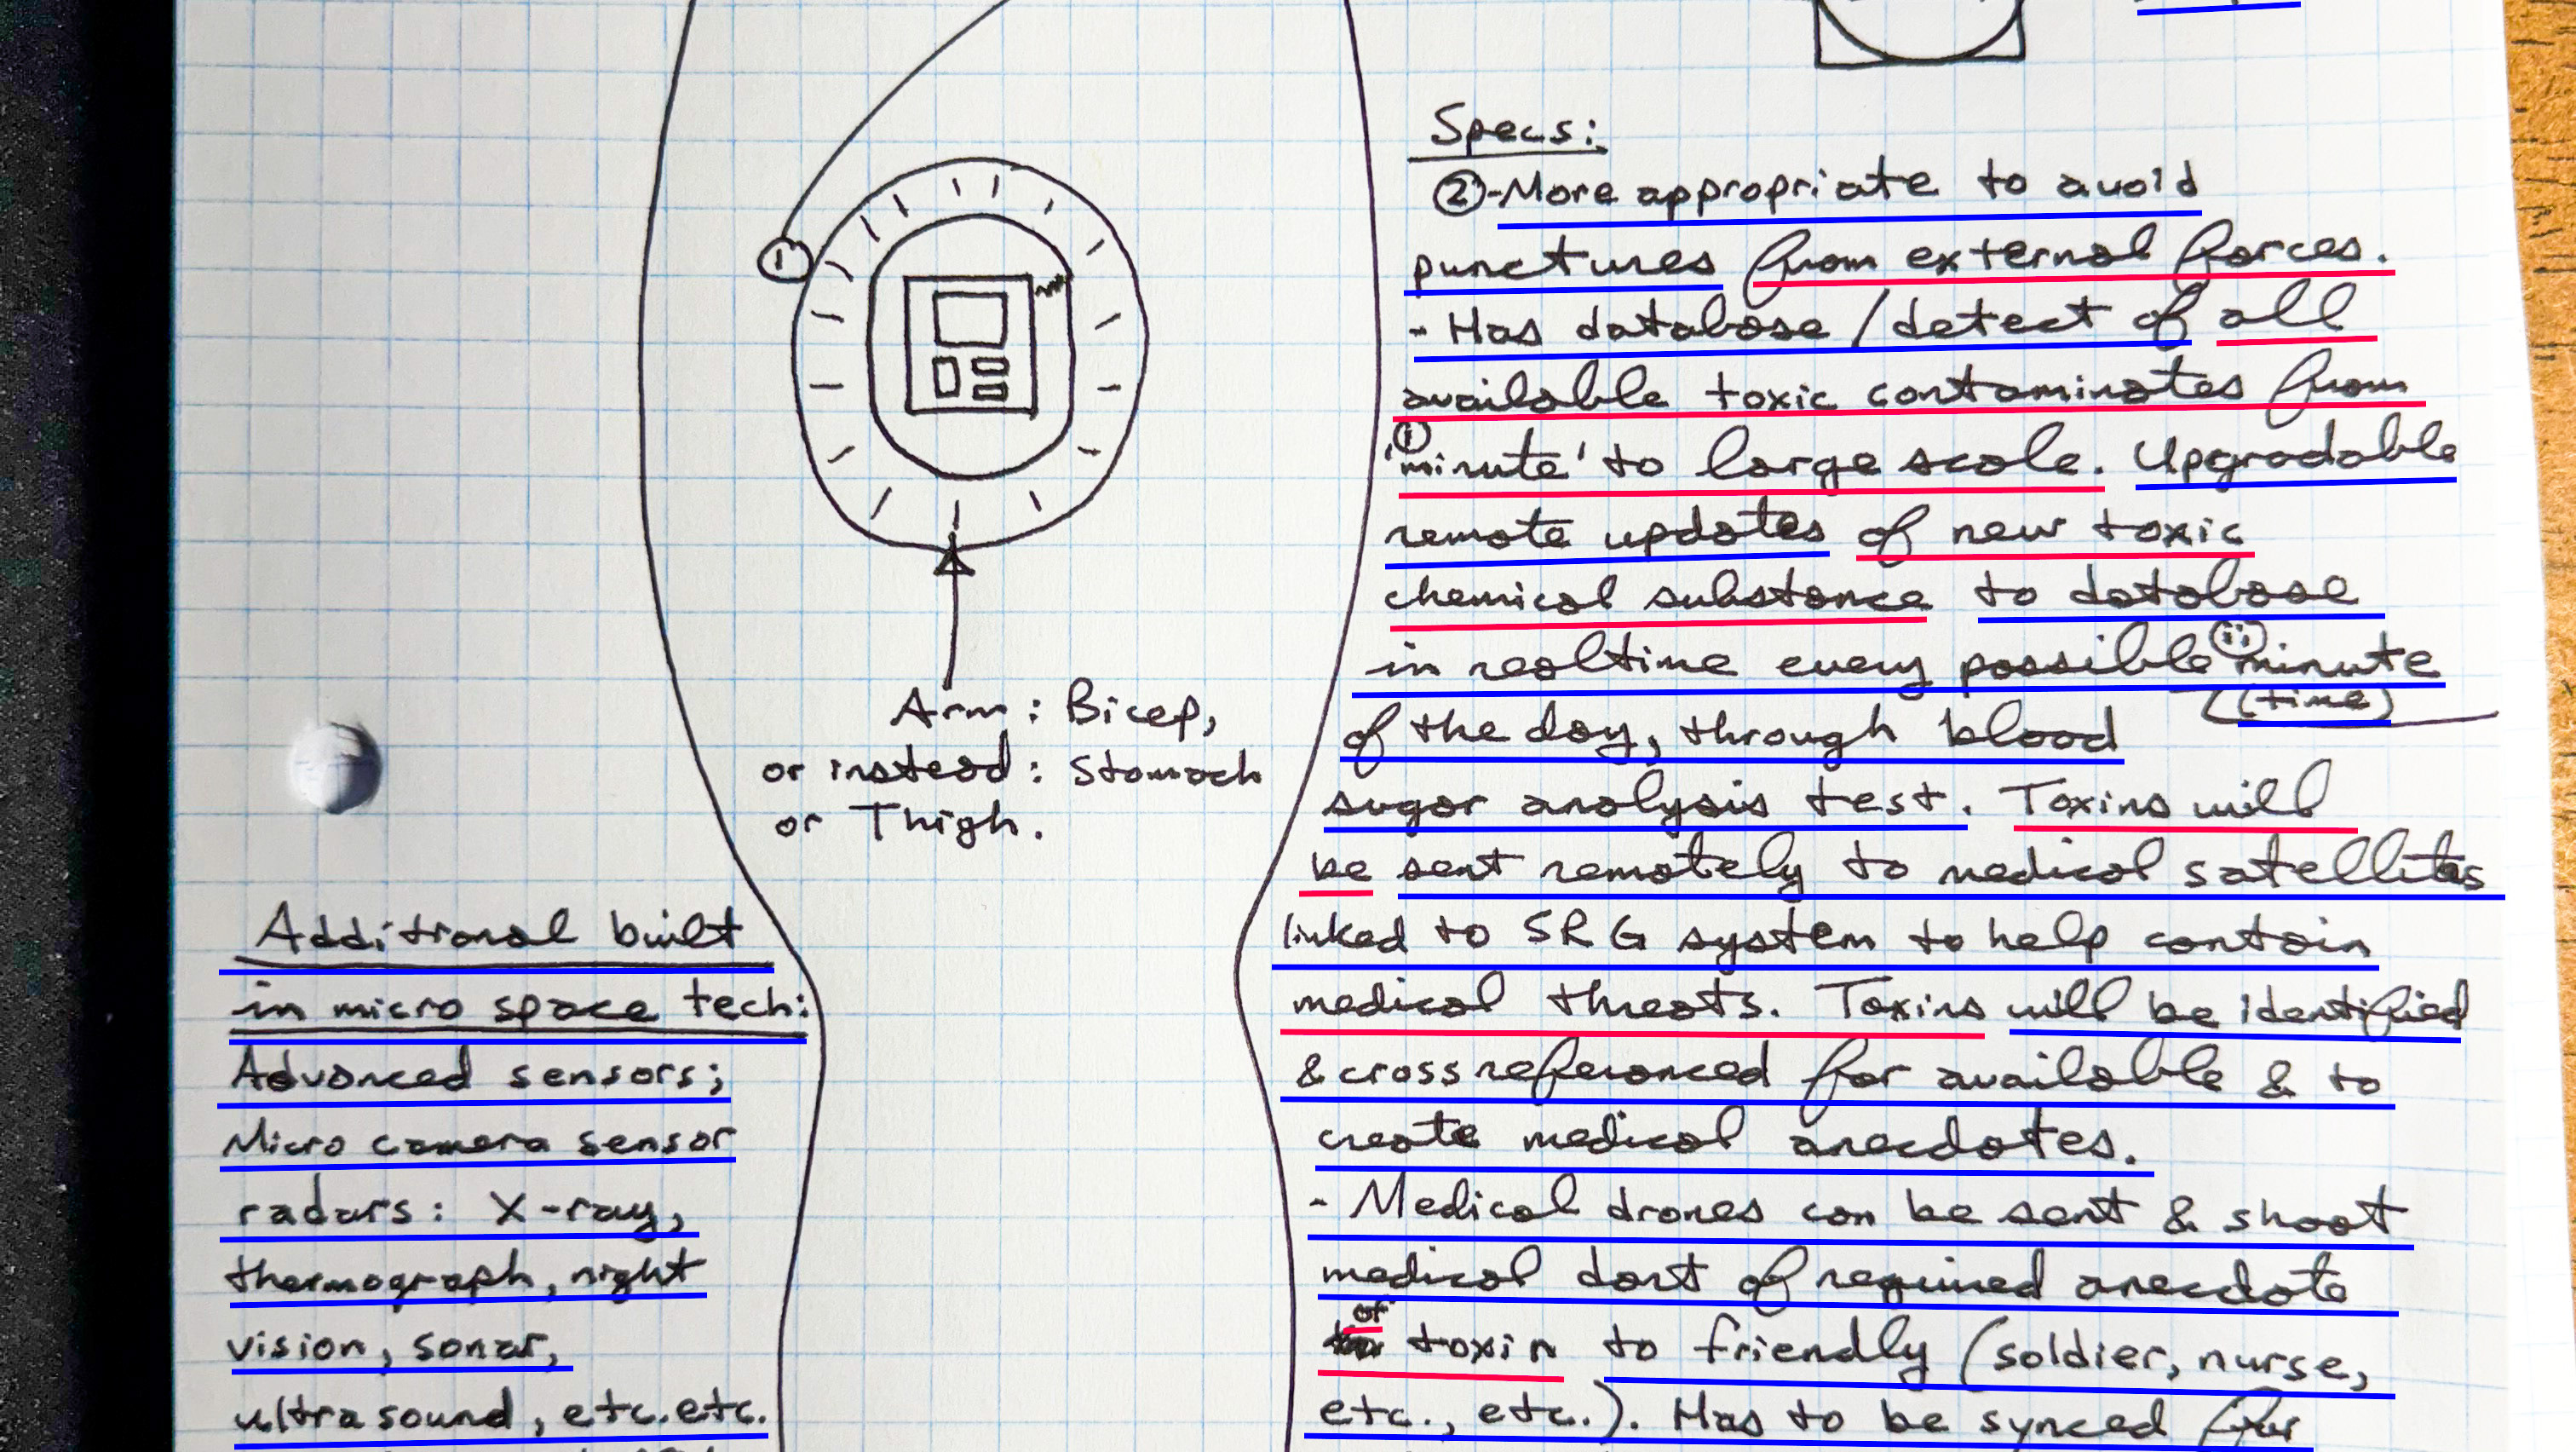 ①
Arm: Bicep,
or instead: Stomach
or Thigh.
Additional built
in micro space tech:
Advanced sensors;
Micro camera sensor
radars: X-ray,
thermograph, night
vision, sonar,
ultra sound, etc. etc.
Specs:
②-More appropriate to avoid
punctures from external forces.
- Has database / detect of all
available toxic contaminates from
①
'minute' to large scale. Upgradable
remote updates of new toxic
chemical substance to database
in realtime every possible ⓘⓘ minute
(time)
of the day, through blood
sugar analysis test. Toxins will
be sent remotely to medical satellites
linked to SRG system to help contain
medical threats. Toxins will be identified
& cross referenced for available & to
create medical anecdotes.
- Medical drones can be sent & shoot
medical dart of required anecdote
of
toxin to friendly (soldier, nurse,
etc., etc.). Has to be synced for